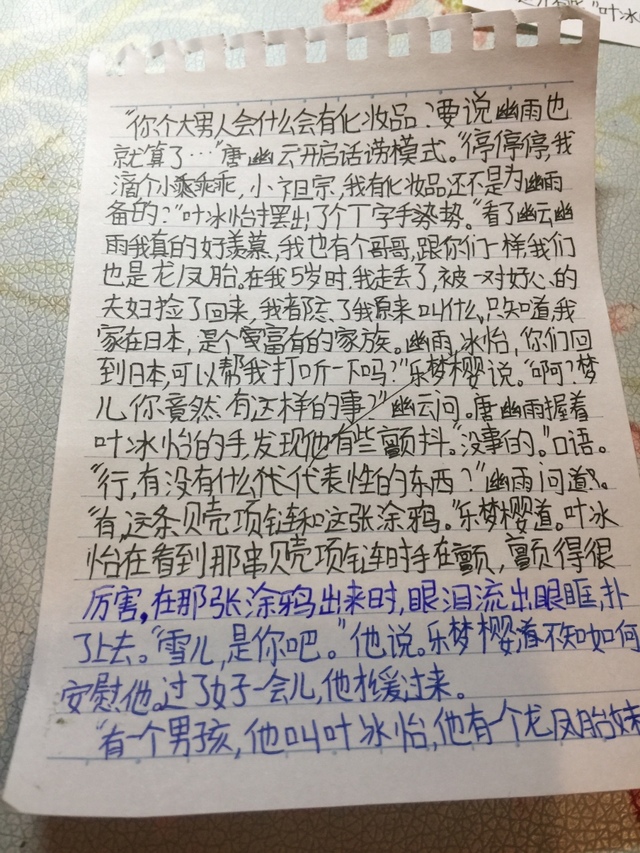 叶冰
"你个大男人会什么会有化妆品?要说幽雨也
就算了…"唐幽云开启话涝模式。"停停停,我
滴个小乖乖乖,小祖宗,我有化妆品还不是为幽雨
备的?"叶冰怡摆出了个丁字手势势。"看了幽云幽
雨我真的好羡慕,我也有个哥哥,跟你们一样,我们
也是龙凤胎。在我5岁时,我走丢了,被一对好心的
夫妇捡了回来,我都忘了我原来叫什么,只知道,我
家在日本,是个蛮富有的家族。幽雨,冰怡,你们回
到日本,可以帮我打听一下吗?"乐梦樱说。"啊?梦
儿,你竟然有这样的事?"幽云问。唐幽雨握着
叶冰怡的手,发现他有些颤抖。"没事的。"口语。
"行,有没有什么代表性的东西?"幽雨问道。
"有,这条贝壳项链和这张涂鸦。"乐梦樱道。叶冰
怡在看到那串贝壳项链时手在颤,颤得很
厉害,在那张涂鸦出来时,眼泪流出眼眶,扑
了上去。"雪儿,是你吧。"他说。乐梦樱道不知如何
安慰他。过了好一会儿,他才缓过来。
"有一个男孩,他叫叶冰怡,他有一个龙凤胎妹